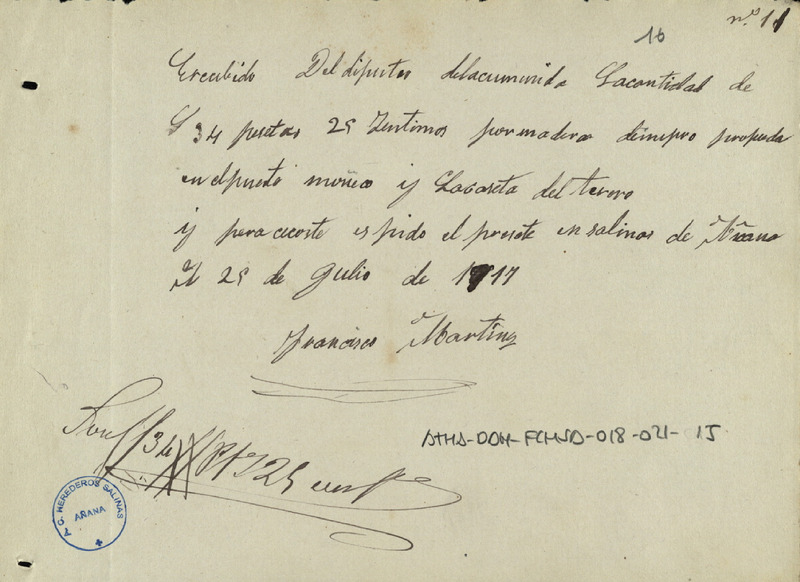 nº 11
16
Erecibido Del diputao delacumunida Lacantidad de
S 34 pesetas 25 Zentimos por madera dimepro
en el puesto y Lacaseta del terero
y para ceconste espido el presete en salinas de Añana
A 25 de Gulio de 1917
Francisco Martinez
Son // 34 // Pts 25 cens
ATHA-DAH-FCHSA-018-021-15
A C. HEREDEROS SALINAS
AÑANA